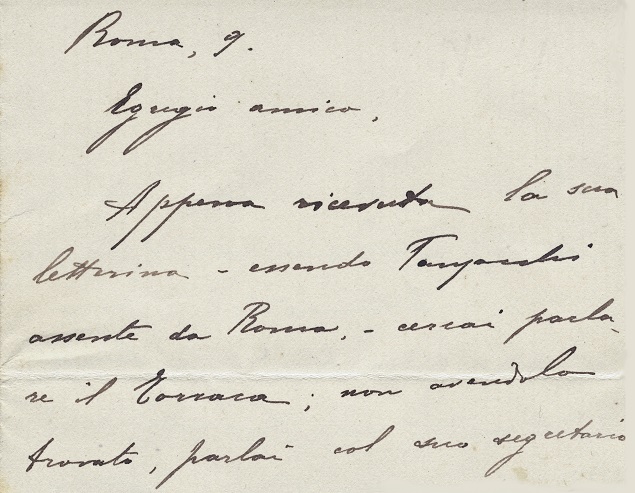 Roma, 9.
Egregio amico,
Appena ricevuta la sua
letterina - essendo
assente da Roma, - cercai parla-
re il Torraca; non avendolo
trovato, parlai col suo segretario